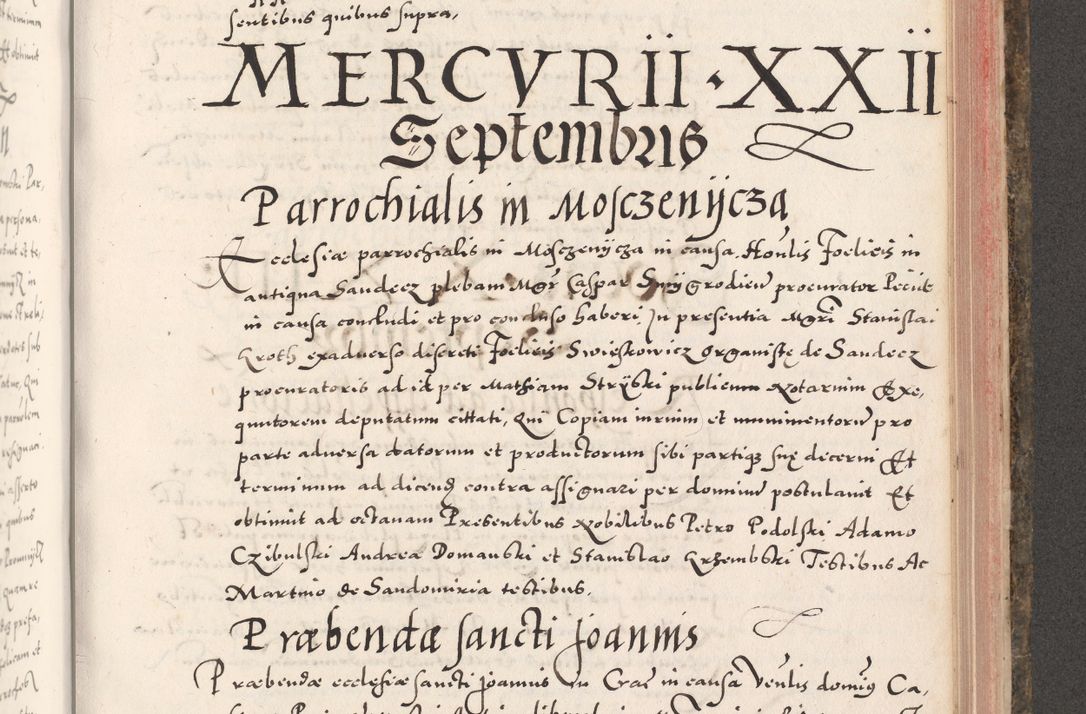 sentibus quibus supra,
MERCVRII · XXII
Septembris
Parrochialis in Mosczenijcza
Ecclesiæ parrochialis in Mosczenijcza in causa Hon̄lis Foelicis in
antiqua Sandecz plebani Mgr̄ Caspar procurator
in causa concludi et pro concluso haberi, In presentia Mgr̄i Stanislai
Groth exaduerso discreti Foelicis Swieskowicz organistę de Sandecz
procuratoris ad id per Mathiam Strÿski publicum Notarium Exe,
quutorem deputatum cittati, Qui Copiam iurium et munimentorū pro
parte aduersa datorum et productorum sibi partiq3 suę decerni Et
terminum ad dicend contra assignari per dominū postulauit Et
obtinuit ad octauam Presentibus Nobilibus Petro Podolski Adamo
Czibulski Andrea Domanski et Stanislao Grzembski Testibus Ac
Martino de Sandomiria testibus.
Præbendæ sancti Joannis
Præbendæ ecclesiæ sancti Joannis in Crac̄ in causa Ven̄lis dominj Ca,